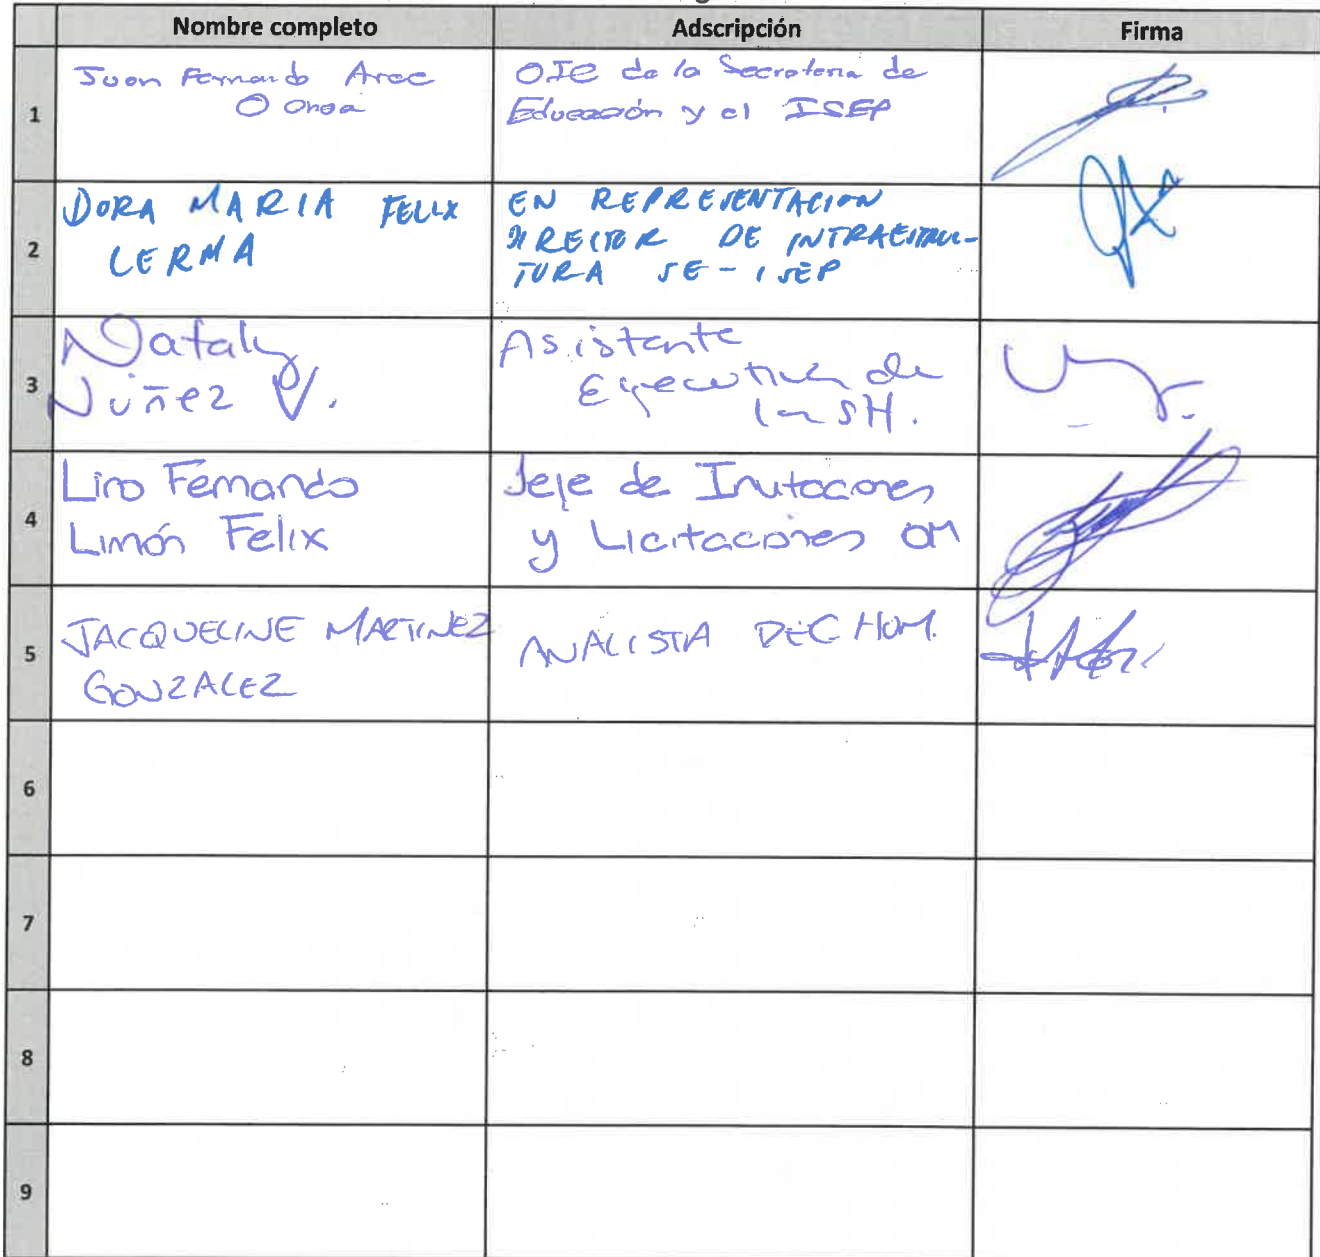 Nombre completo Adscripción Firma
1
Juan Fernando Arce
Ochoa
OIC de la Secretaria de
Educación y el ISEP
2
DORA MARIA FELIX
LERMA
EN REPRESENTACION
DIRECTOR DE INFRAESTRUC-
TURA SE-ISEP
3
Nataly
Núñez V.
Asistente
Ejecutiva de
la SH.
4
Lino Fernando
Limón Felix
Jefe de Invitaciones
y Licitaciones OM
5
JACQUELINE MARTINEZ
GONZALEZ
ANALISTA
6
7
8
9